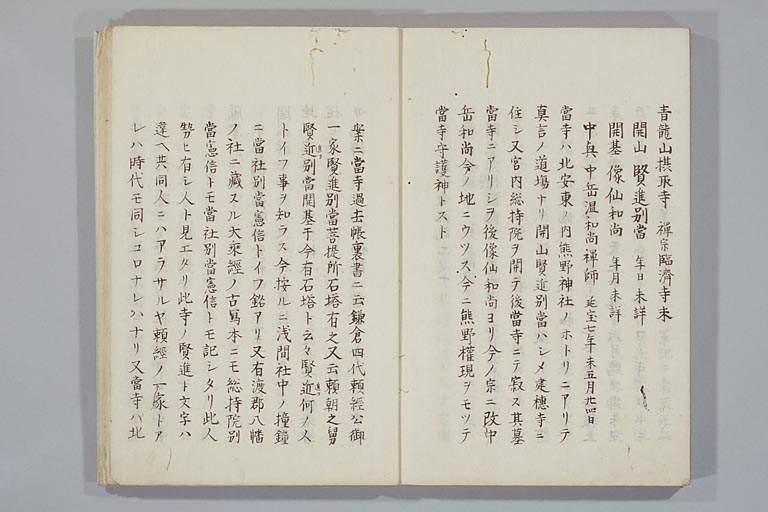 青龍山拱取寺 禅宗臨濟寺末
開山 賢進別當 年日未詳
開基 像仙和尚 年月未詳
中興 中岳温和尚禪師 延宝七年未五月廿四日
當寺ハ北安東ノ内熊野神社ノホトリニアリテ
真言ノ道場ナリ開山賢進別當ハシメ建穗寺ニ
住シ又宮内総持院ヲ開テ後當寺ニテ寂ス其墓
當寺ニアリシヲ後像仙和尚ヨリ今ノ宗ニ改中
岳和尚今ノ地ニウツス今ニ熊野權現ヲモツテ
當寺守護神トスト
案ニ當寺過去帳裏書ニ云鎌倉四代頼經公御
一家賢進別當菩提所石塔有之又云頼朝之舅
賢近別當開基于今有石塔ト云々賢近何ノ人
トイフ事ヲ知ラス今按ルニ浅間社中ノ撞鐘
ニ當社別當憲信トイフ銘アリ又有渡郡八幡
ノ社ニ藏スル大乗經ノ古寫本ニモ総持院別
當憲信トモ當社別當憲信トモ記シタリ此人
勢ヒ有シ人ト見エタリ此寺ノ賢進ト文字ハ
違ヘ共同人ニハアラサルヤ頼經ノ一家トア
レハ時代モ同シコロナレハナリ又當寺ハ北